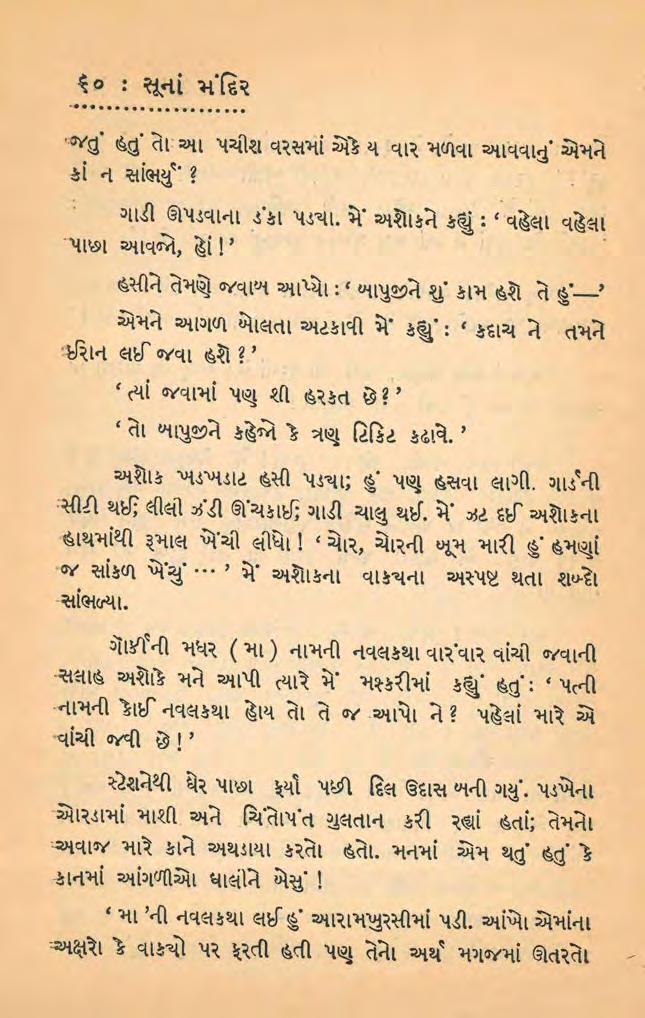 ૬૦ : સૂનાં મંદિર
જતું હતું તો આ પચીશ વરસમાં એકે ય વાર મળવા આવવાનું એમને
કાં ન સાંભર્યું ?
ગાડી ઊપડવાના ડંકા પડયા. મેં અશોકને કહ્યું : ‘ વહેલા વહેલા
પાછા આવજો, હોં !’
હસીને તેમણે જવાબ આપ્યો : ‘ બાપુજીને શું કામ હશે તે હું—’
એમને આગળ બોલતા અટકાવી મેં કહ્યું : ‘ કદાચ ને તમને
ઈરાન લઈ જવા હશે ?’
‘ ત્યાં જવામાં પણ શી હરકત છે ?’
‘ તો બાપુજીને કહેજો કે ત્રણ ટિકિટ કઢાવે. ’
અશોક ખડખડાટ હસી પડયા; હું પણ હસવા લાગી. ગાર્ડની
સીટી થઈ; લીલી ઝંડી ઊંચકાઈ; ગાડી ચાલુ થઈ. મેં ઝટ દઈ અશોકના
હાથમાંથી રૂમાલ ખેંચી લીધો ! ‘ ચોર, ચોરની બૂમ મારી હું હમણાં
જ સાંકળ ખેંચું ... ’ મેં અશોકના વાકયના અસ્પષ્ટ થતા શબ્દો
સાંભળ્યા.
ગૉર્કીની મધર ( મા ) નામની નવલકથા વારંવાર વાંચી જવાની
સલાહ અશોકે મને આપી ત્યારે મેં મશ્કરીમાં કહ્યું હતું : ‘ પત્ની
નામની કોઈ નવલકથા હોય તો તે જ આપો ને ? પહેલાં મારે એ
વાંચી જવી છે !’
સ્ટેશનેથી ઘેર પાછા ફર્યા પછી દિલ ઉદાસ બની ગયું. પડખેના
ઓરડામાં માશી અને ચિંતોપંત ગુલતાન કરી રહ્યાં હતાં; તેમનો
અવાજ મારે કાને અથડાયા કરતો હતો. મનમાં એમ થતું હતું કે
કાનમાં આંગળીઓ ઘાલીને બેસું !
‘ મા ’ની નવલકથા લઈ હું આરામખુરસીમાં પડી. આંખો એમાંના
અક્ષરો કે વાકયો પર ફરતી હતી પણ તેનો અર્થ મગજમાં ઊતરતો